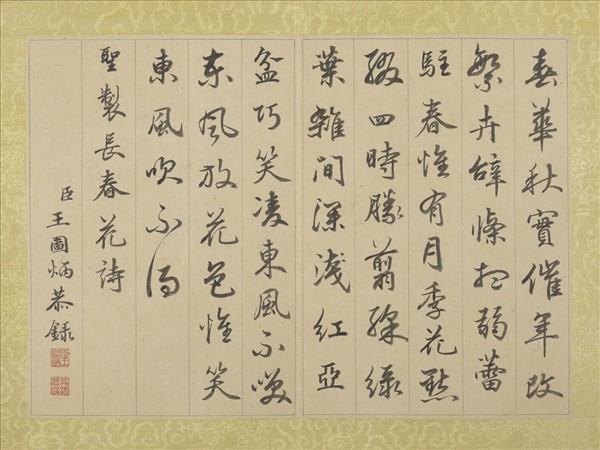 春華秋實催年改
繁卉辭條想弱蕾
駐春惟有月季花點
綴四時勝翦綵綠
葉雜間深淺紅亞
盆巧笑凌東風不咲
東風放花色惟笑
東風吹不得
聖製長春花詩
臣王圖炳恭錄